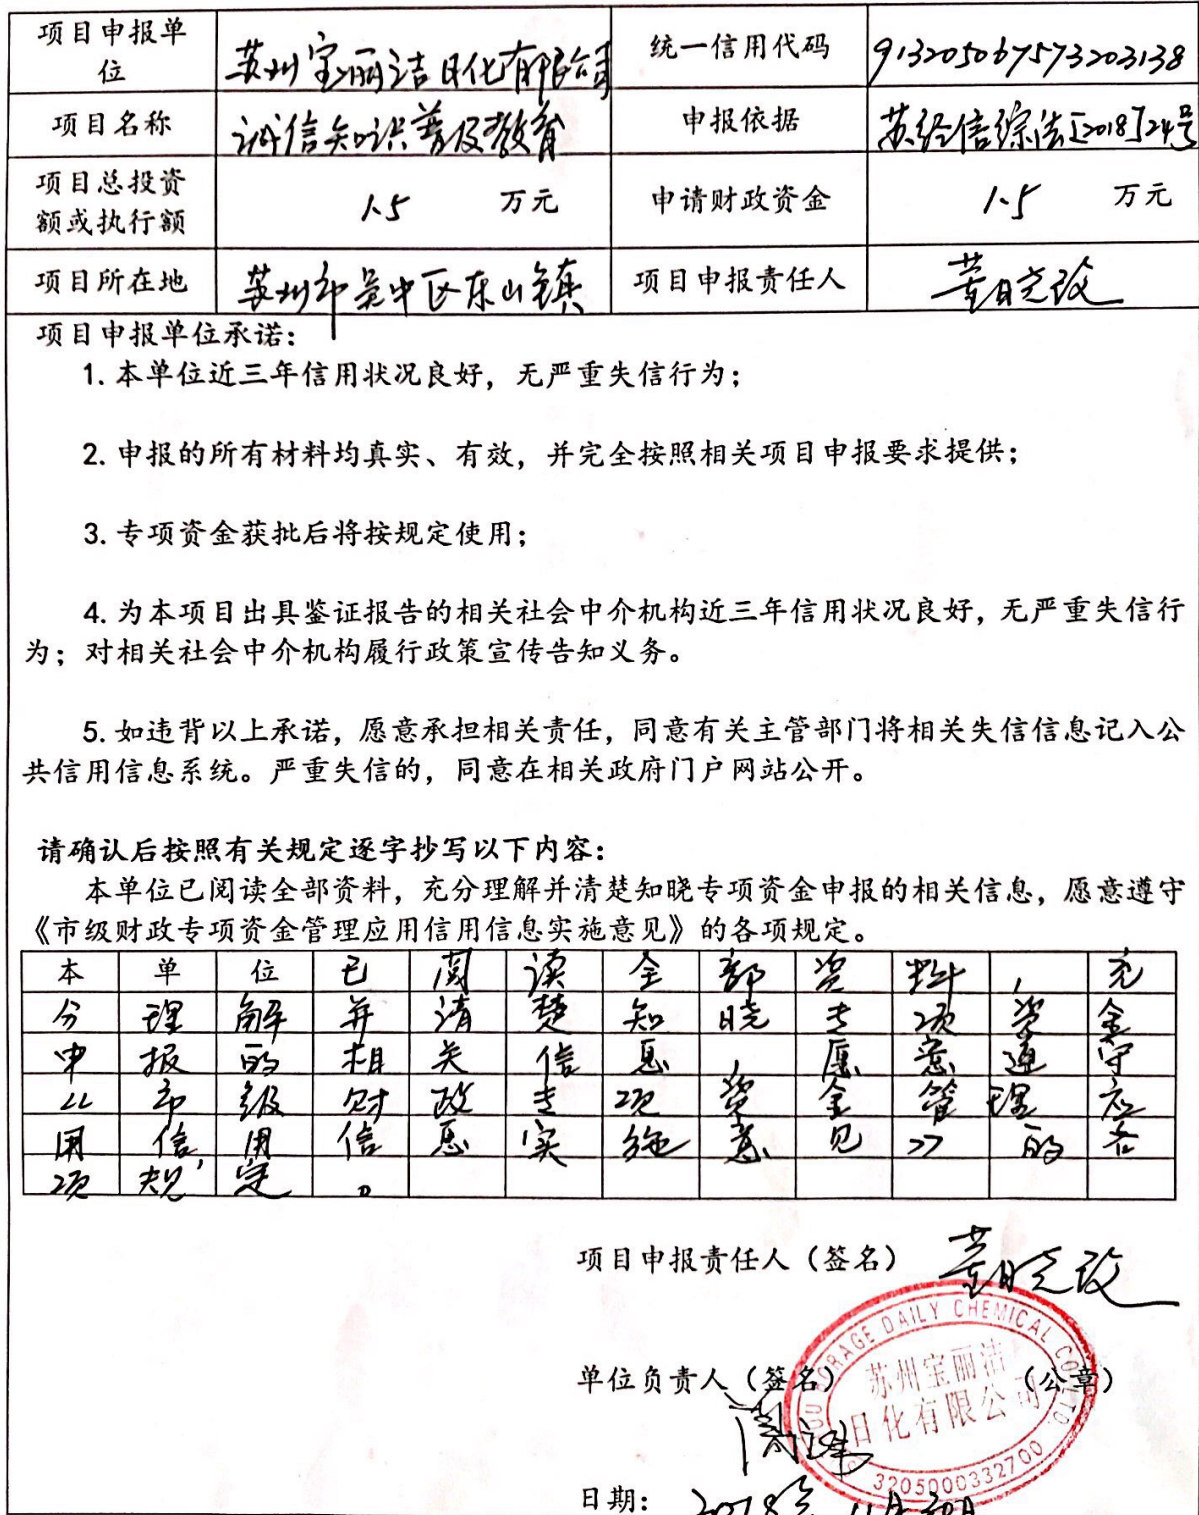 项目申报单位 苏州宝丽洁日化有限公司 统一信用代码 913205067573203138
项目名称 诚信知识普及教育 申报依据 苏经信综法[2018]24号
项目总投资额或执行额 1.5 万元 申请财政资金 1.5 万元
项目所在地 苏州市吴中区东山镇 项目申报责任人 董晓政
项目申报单位承诺：
1.本单位近三年信用状况良好，无严重失信行为；
2.申报的所有材料均真实、有效，并完全按照相关项目申报要求提供；
3.专项资金获批后将按规定使用；
4.为本项目出具鉴证报告的相关社会中介机构近三年信用状况良好，无严重失信行
为；对相关社会中介机构履行政策宣传告知义务。
5.如违背以上承诺，愿意承担相关责任，同意有关主管部门将相关失信信息记入公
共信用信息系统。严重失信的，同意在相关政府门户网站公开。
请确认后按照有关规定逐字抄写以下内容：
本单位已阅读全部资料，充分理解并清楚知晓专项资金申报的相关信息，愿意遵守
《市级财政专项资金管理应用信用信息实施意见》的各项规定。
本单位已阅读全部资料，充
分理解并清楚知晓专项资金
申报的相关信息，愿意遵守
《市级财政专项资金管理应
用信用信息实施意见》的各
项规定。
项目申报责任人（签名） 董晓政
单位负责人（签名） （公章）
SUZHOU BORAGE DAILY CHEMICAL CO.,LTD.
苏州宝丽洁
日化有限公司
3205000332700
日期： 2018年11月20日